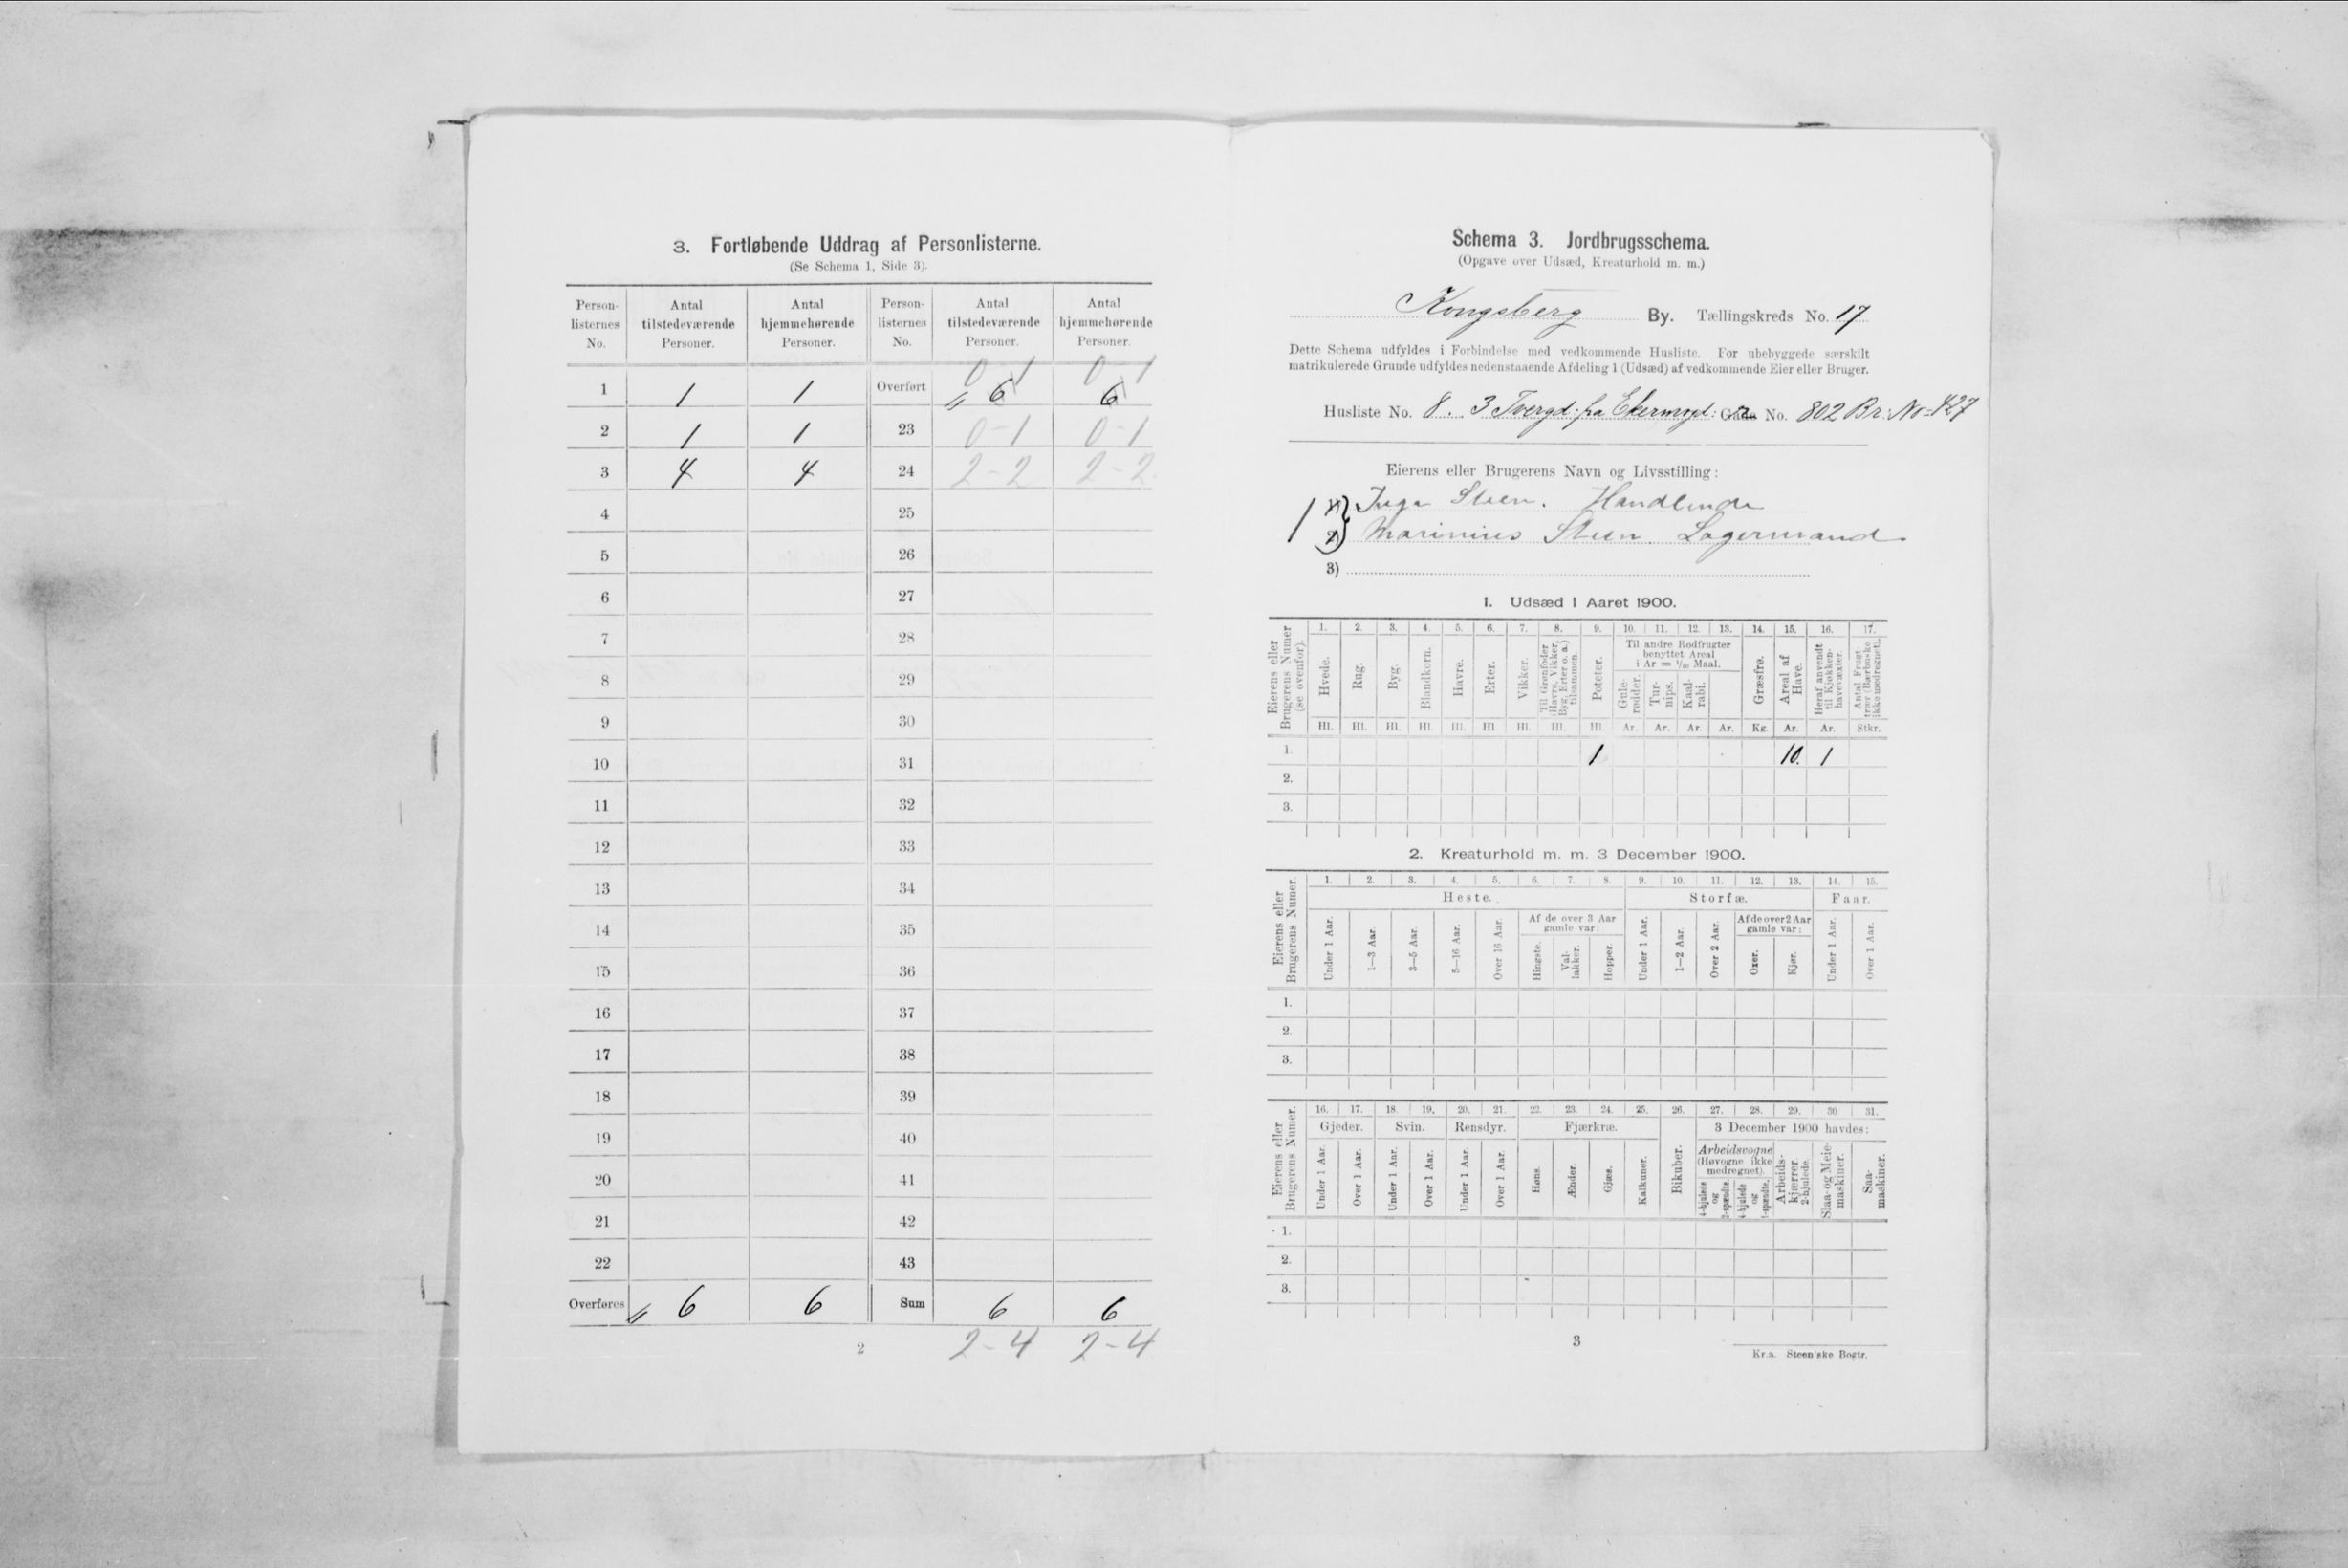 3. Fortløbende Uddrag af Personlisterne.
(Se Schema 1, Side 3).
Person-listernes No. Antal tilstedeværende Personer. Antal hjemmehørende Personer. Person-listernes No. Antal tilstedeværende Personer. Antal hjemmehørende Personer.
0-1 0-1
1 1 1 Overført 6 6
2 1 1 23 0-1 0-1
3 4 4 24 2-2 2-2
4 25
5 26
6 27
7 28
8 29
9 30
10 31
11 32
12 33
13 34
14 35
15 36
16 37
17 38
18 39
19 40
20 41
21 42
22 43
Overføres 6 6 Sum 6 6
2-4 2-4
2
Schema 3. Jordbrugsschema.
(Opgave over Udsæd, Kreaturhold m. m.)
Kongsberg By. Tællingskreds No. 17
Dette Schema udfyldes i Forbindelse med vedkommende Husliste. For ubebyggede særskilt
matrikulerede Grunde udfyldes nedenstaaende Afdeling 1 (Udsæd) af vedkommende Eier eller Bruger.
Husliste No. 8. 3 Tvergd: fra Ekermyd: No. 802 Br: No 427
Eierens eller Brugerens Navn og Livsstilling:
1 Inga Steen. Handlende
2) Marinius Steen. Lagermand.
3)
1. Udsæd i Aaret 1900.
Eierens eller Brugerens Numer (se ovenfor).
1. 2. 3. 4. 5. 6. 7. 8. 9. 10. 11. 12. 13. 14. 15. 16. 17.
Hvede. Rug. Byg. Blandkorn. Havre. Erter. Vikker. Til Grønfoder (Havre, Vikker, Byg, Erter o. a.) tilsammen. Poteter. Til andre Rodfrugter benyttet Areal i Ar = 1/10 Maal. Gule-rødder. Tur-nips. Kaal-rabi. Græsfrø. Areal af Have. Heraf anvendt til Kjøkken-havevæxter. Antal Frugt-trær (Bærbuske ikke medregnet).
Hl. Hl. Hl. Hl. Hl. Hl Hl. Hl. Hl. Ar. Ar. Ar. Ar. Kg. Ar. Ar. Stkr.
1. 1 10. 1
2.
3.
2. Kreaturhold m. m. 3 December 1900.
Eierens eller Brugerens Numer.
1. 2. 3. 4. 5. 6. 7. 8. 9. 10. 11. 12. 13. 14. 15.
Heste. Storfæ. Faar.
Under 1 Aar. 1—3 Aar. 3—5 Aar. 5—16 Aar. Over 16 Aar. Af de over 3 Aar gamle var: Hingste. Val-lakker. Hopper. Under 1 Aar. 1—2 Aar. Over 2 Aar. Af de over 2 Aar gamle var: Oxer. Kjør. Under 1 Aar. Over 1 Aar.
1.
2.
3.
Eierens eller Brugerens Numer.
16. 17. 18. 19. 20. 21. 22. 23. 24. 25. 26. 27. 28. 29. 30 31.
Gjeder. Svin. Rensdyr. Fjærkræ. Bikuber. 3 December 1900 havdes:
Under 1 Aar. Over 1 Aar. Under 1 Aar. Over 1 Aar. Under 1 Aar. Over 1 Aar. Høns. Ænder. Gjæs. Kalkuner. Arbeidsvogne (Høvogne ikke medregnet). 4-hjulede og 2-spændte. 4-hjulede og 1-spændte. Arbeids-kjærrer 2-hjulede. Slaa- og Meie-maskiner. Saa-maskiner.
1.
2.
3.
3
Kr.a. Steen'ske Bogtr.